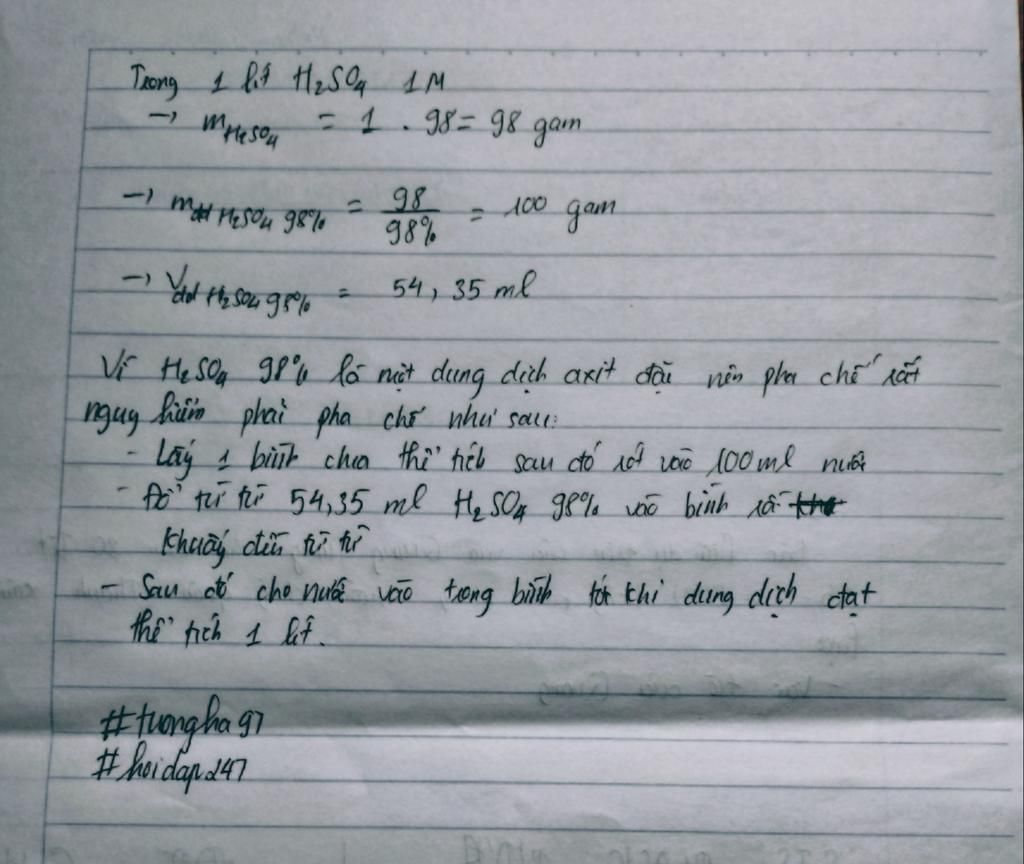 Trong 1 lít H2SO4 1M
→ mH2SO4 = 1 . 98 = 98 gam
→ mdd H2SO4 98% = 98/98% = 100 gam
→ Vdd H2SO4 98% = 54,35 ml
Vì H2SO4 98% là một dung dịch axit đặc nên pha chế rất
nguy hiểm phải pha chế như sau:
- Lấy 1 bình chia thể tích sau đó rót vào 100 ml nước
- Đổ từ từ 54,35 ml H2SO4 98% vào bình rồi
khuấy đều từ từ
- Sau đó cho nước vào trong bình tới khi dung dịch đạt
thể tích 1 lít.
#tuongha97
#hoidap247